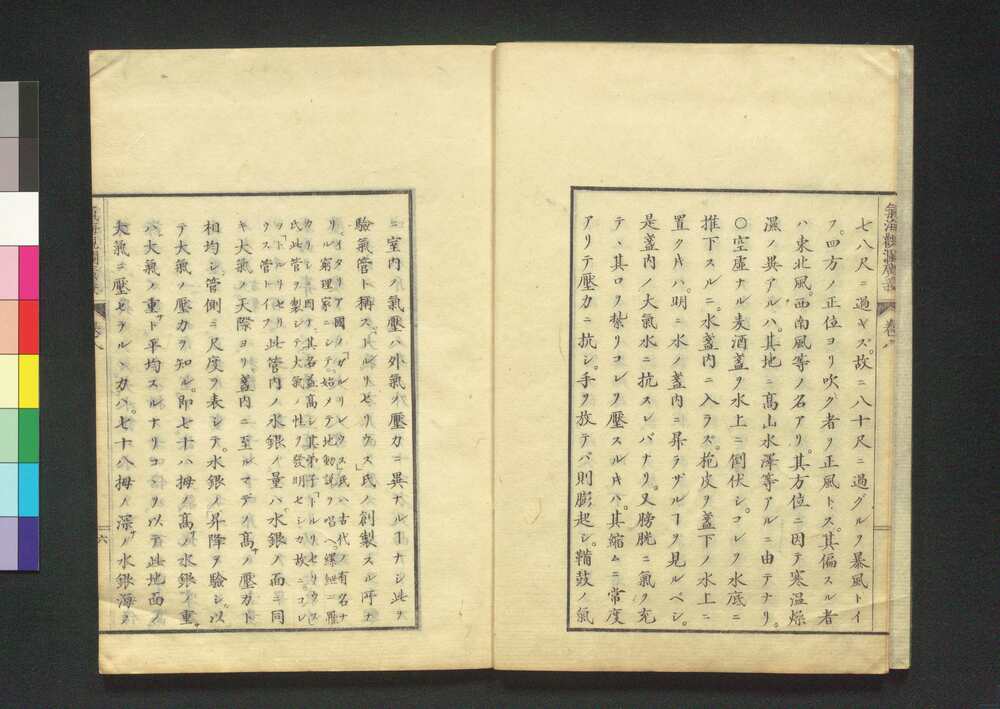 氣海觀瀾廣義
卷八
七八尺ニ過ギズ。故ニ八十尺ニ過グルヲ暴風トイ
フ。四方ノ正位ヨリ吹ク者ヲ正風トス。其偏スル者
ハ東北風西南風等ノ名アリ。其方位ニ因テ寒温燥
濕ノ異アルハ、其地ニ高山水澤等アルニ由テナリ。
○空虚ナル麦酒盞ヲ水上ニ倒伏シ。コレヲ水底ニ
推下スルニ。水盞内ニ入ラズ。枹皮ヲ盞下ノ水上ニ
置ク𪜈ハ。明ニ水ノ盞内ニ昇ラザルヿヲ見ルベシ。
是盞内ノ大氣水ニ抗スレバナリ。又膀胱ニ氣ヲ充
テ、其口ヲ紮リコレヲ壓スル𪜈ハ。其縮ムニ常度
アリテ壓力ニ抗シ。手ヲ放テバ則膨起シ。鞴鼓ノ氣
ニ室内ノ氣壓ハ外氣ノ壓力ニ異ナルヿナシ此ヲ
驗氣管ト稱ス「トルリセリウス」氏ノ創製スル所ナ
リ「イタリア國ノ「ガルリレウス」氏ハ古代ノ有名ナ
ル窮理家ニシテ。始メテ地動説ヲ唱ヘ縲絏ニ罹
カリシニ因テ其名益高シ其弟子「トルリセリウス」
氏此管ヲ製シテ大氣ノ性ヲ發明セシカ故ニ。コレ
ヲ「トルリセリ
ウス管トイフ
此管内ノ水銀ノ量ハ水銀ノ面ニ同
キ大氣ノ天際ヨリ。盞内ニ至ルマデノ高サノ壓力ト
相均シ管側ニ尺度ヲ表シテ。水銀ノ昇降ヲ驗シ。以
テ大氣ノ壓力ヲ知ル。即七十八拇ノ高サノ水銀ノ重サ
ハ大氣ノ重サト平均スルナリコヽヲ以テ此地面ノ
大氣ニ壓セラルヽ力ハ。七十八拇ノ深サノ水銀海ヲ
六